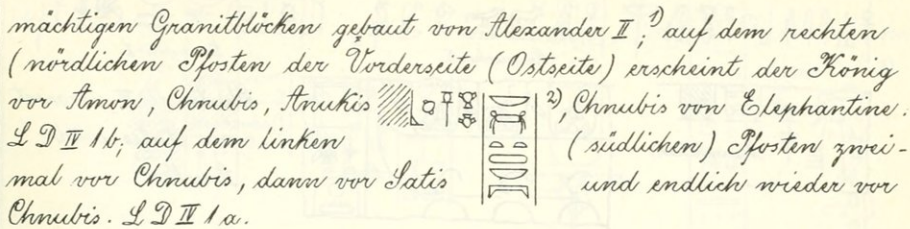 mächtigen Granitblöcken gebaut von Alexander II;¹) auf dem rechten
(nördlichen Pfosten der Vorderseite (Ostseite) erscheint der König
vor Amon, Chnubis, Anukis ²), Chnubis von Elephantine.
L D IV 1 b; auf dem linken (südlichen) Pfosten zwei-
mal vor Chnubis, dann vor Satis und endlich wieder vor
Chnubis. L D IV 1 a.